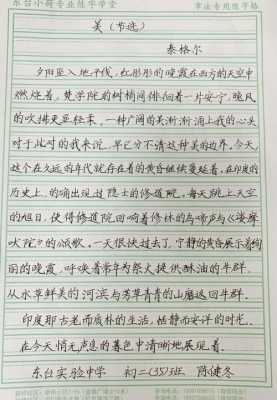 东台小荷专业练字学堂 专业专用练字格
美（节选）
泰格尔
夕阳坠入地平线，红彤彤的晚霞在西方的天空中
燃烧着，梵学院的树梢间徘徊着一片安宁，晚风
的吹拂更显轻柔，一种广阔的美渐渐涌上我的心头
对于此时的我来说，早已分不清这种美的边界。今天，
这个在久远的年代就存在着的黄昏继续蔓延着，在印度的
历史上，的确出现过隐士的修道院，每天跳上天空
的旭日，使得修道院回响着修林的鸟啼声与《娑摩
吠陀》的颂歌，一天很快过去了，宁静的黄昏展示着绚
丽的晚霞，呼唤着常年为祭火提供酥油的牛群，
从水草鲜美的河滨与芳草青青的山麓返回牛群。
印度那古老而质朴的生活，恬静而安详的时光，
在今天悄无声息的暮色中清晰地展现着。
东台实验中学 初二(35)班 陈健冬